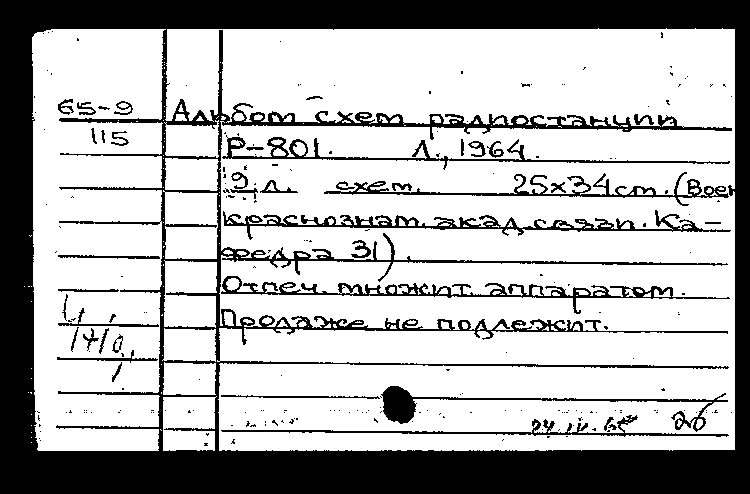 65-9 Альбом схем радиостанции
115 Р-801. Л., 1964.
9 л. схем. 25х34 см. (Воен
краснознам. акад. связи. Ка-
федра 31).
Отпеч. множит. аппаратом.
Продаже не подлежит.
24.IV.65 26